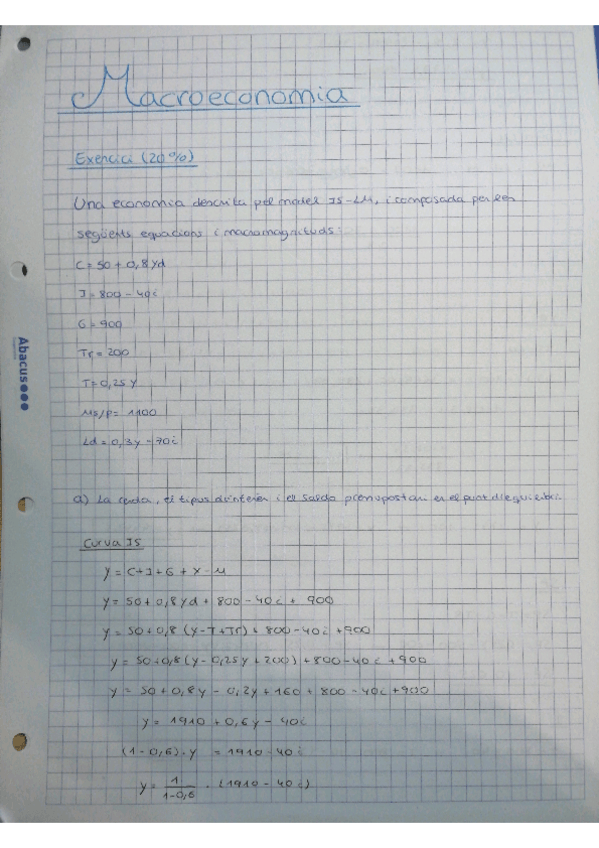 Macroeconomia
Exercici (20%)
Una economia descrita pel model IS-LM, i composada per les
següents equacions i macromagnituds:
C = 50 + 0,8 Yd
I = 800 - 40i
G = 900
Tr = 200
T = 0,25 Y
Ms/P = 1100
Ld = 0,3y - 70i
Abacus
a) La renda, el tipus d'interès i el saldo pressupostari en el punt d'equilibri.
Curva IS
y = C + I + G + X - M
y = 50 + 0,8 yd + 800 - 40i + 900
y = 50 + 0,8 (y - T + Tr) + 800 - 40i + 900
y = 50 + 0,8 (y - 0,25y + 200) + 800 - 40i + 900
y = 50 + 0,8y - 0,2y + 160 + 800 - 40i + 900
y = 1910 + 0,6y - 40i
(1 - 0,6) · y = 1910 - 40i
y = 1/1-0,6 · (1910 - 40i)